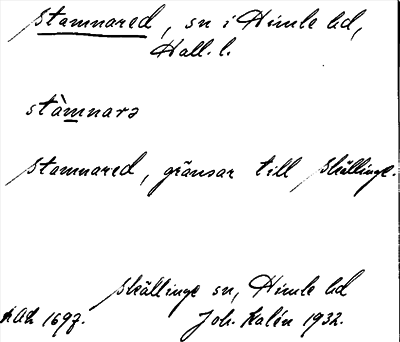 Stamnared, sn i Himle hd,
Hall. l.
stàmnarə
Stamnared, gränsar till Skällinge.
Skällinge sn, Himle hd
Joh. Kalén 1932.